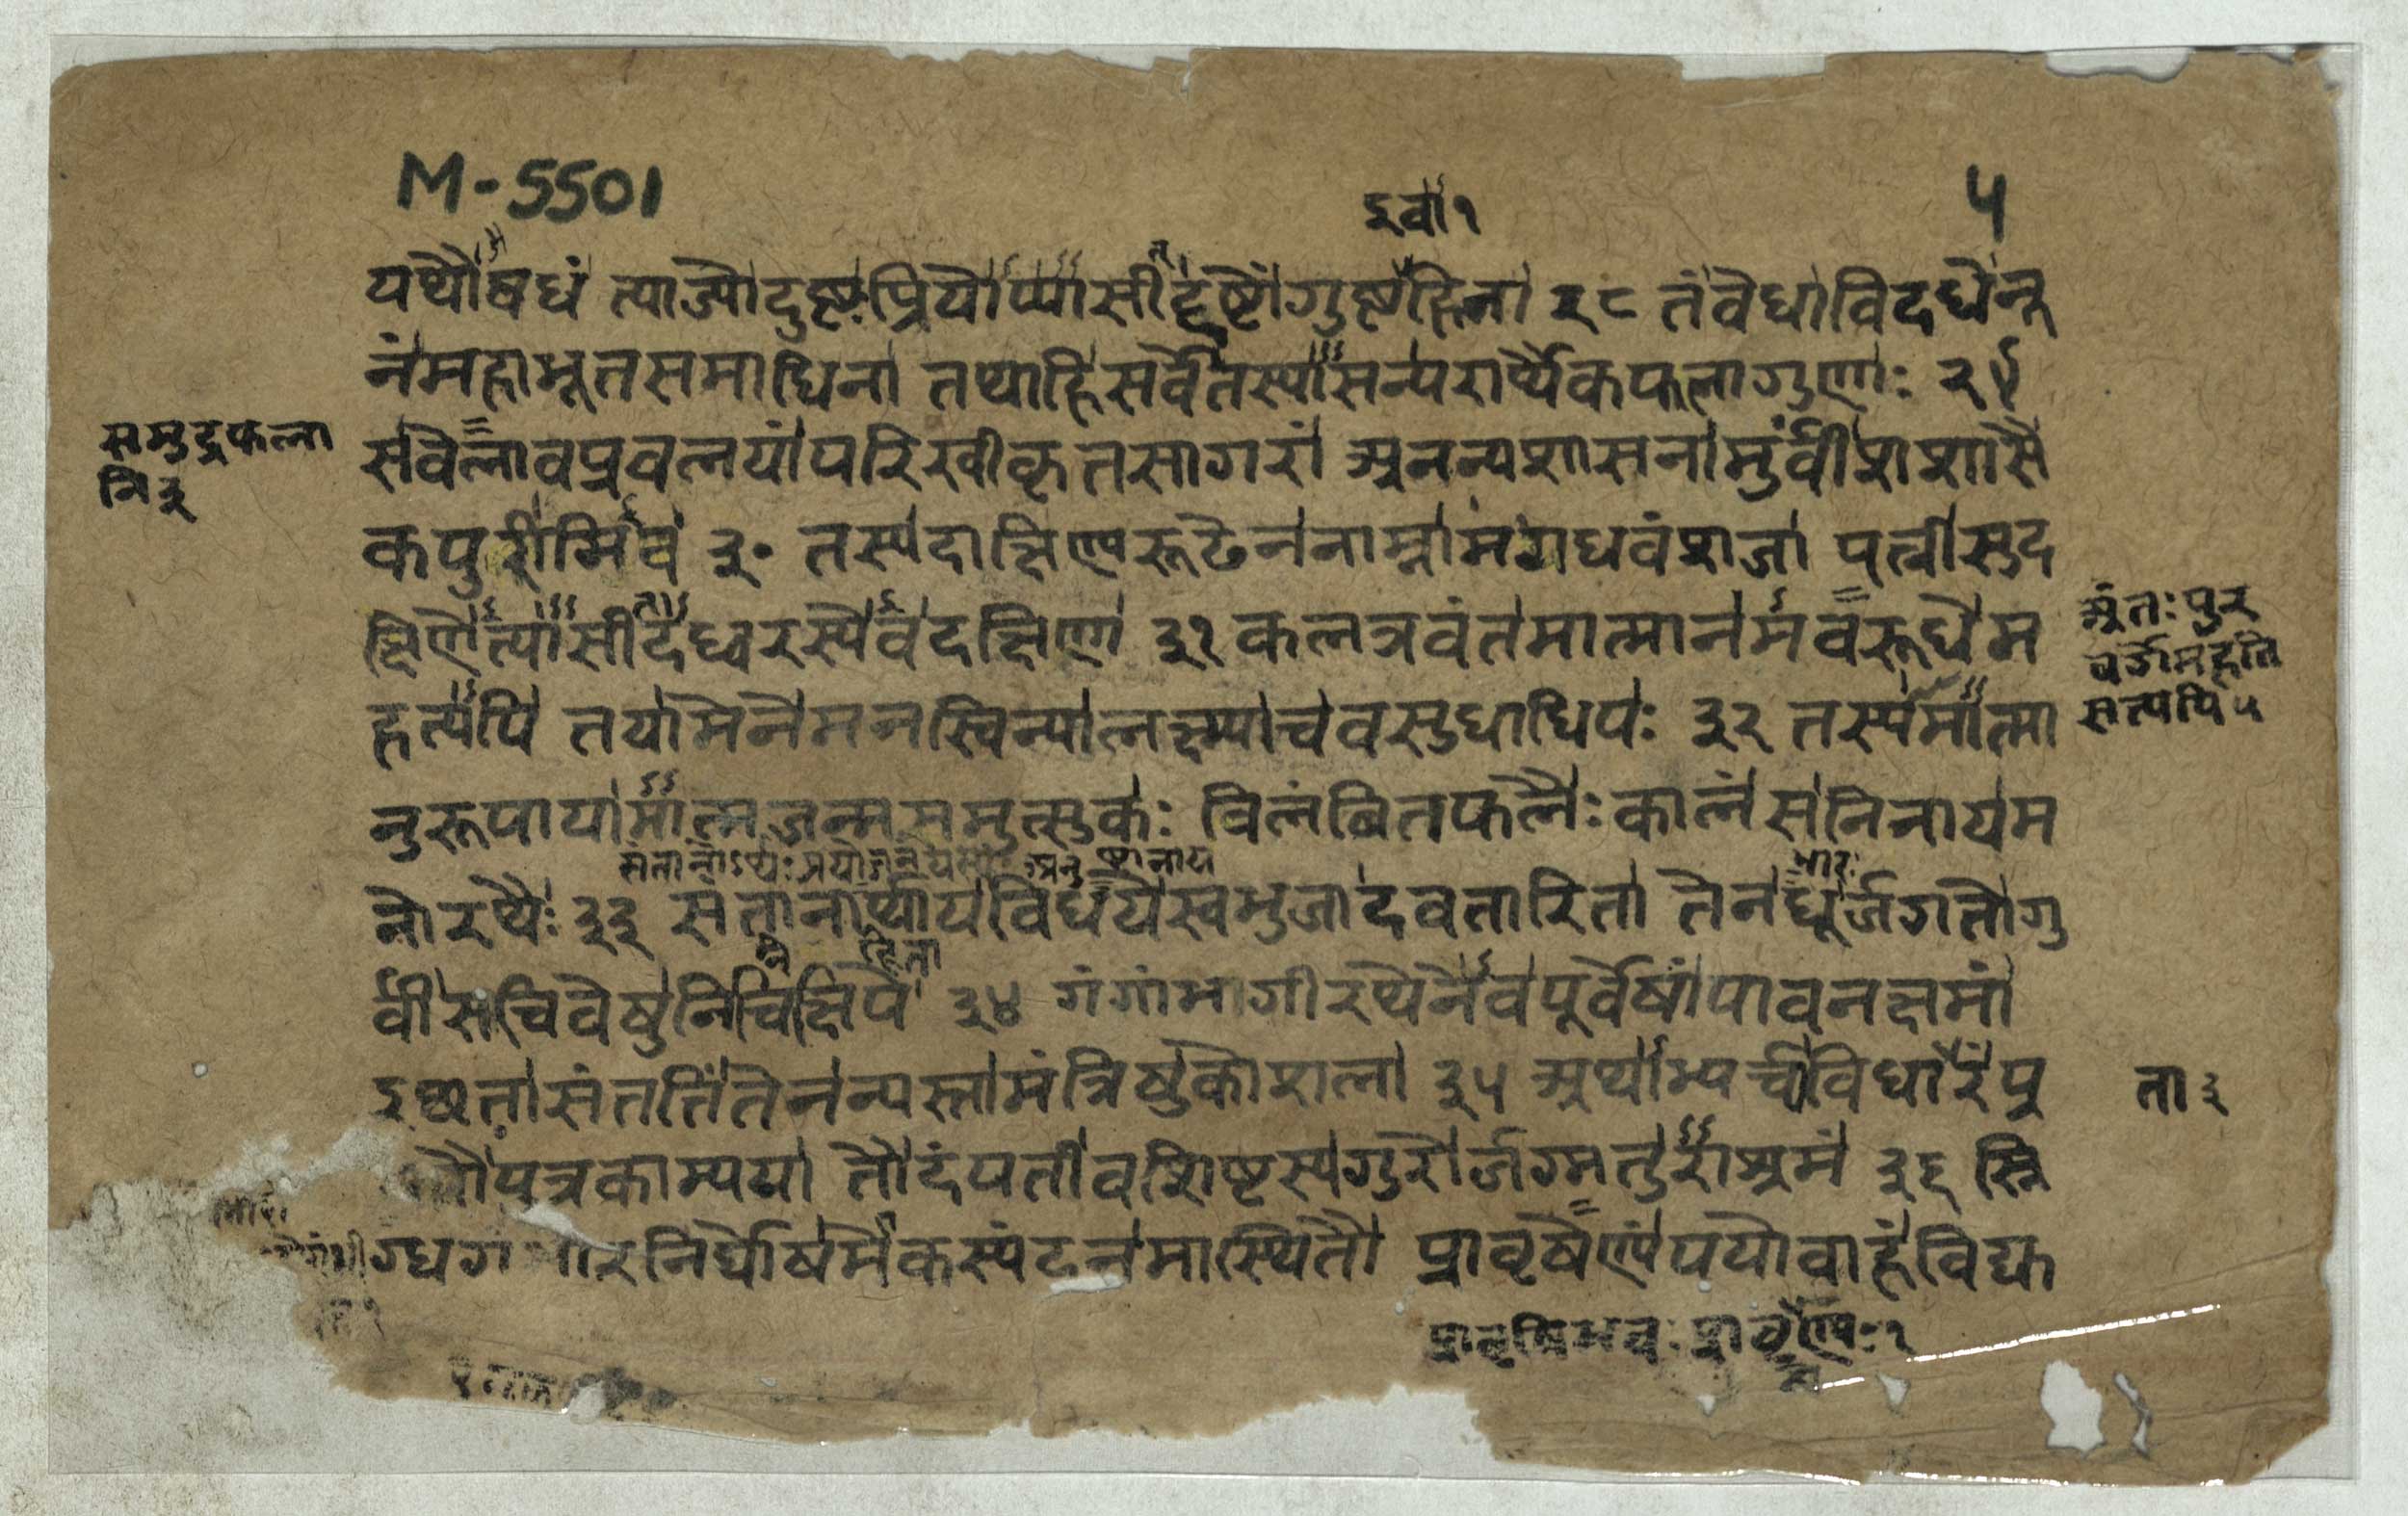 M-5501
इवा १
५
यथौषधं त्याज्योदुष्टःप्रियोप्यासीद्दष्टोंगुष्ठइहिना २८ तंवेधाविदधेनू
नंमहाभूतसमाधिना तथाहिसर्वेतस्यासन्परार्थैकफलागुणाः २९
सवेलावप्रवलयांपरिखीकृतसागरां अनन्यशासनामुर्वींशशासै
समुद्रकला
नि ३
कपुरीमिव ३० तस्यदाक्षिण्यरूढेननाम्नामगधवंशजा पत्नीसुद
क्षिणेत्यासीदध्वरस्येवदक्षिणा ३१ कलत्रवंतमात्मानमवरोधेम
अंतःपुर
वर्गेमहति
सत्यपि ५
हत्यपि तयामेनेमनस्विन्यालक्ष्म्याचवसुधाधिपः ३२ तस्यामात्मा
नुरूपायामात्मजन्मसमुत्सुकः विलंबितफलैःकालंसनिनायम
संतानोऽर्थःप्रयोजनंयस्य अनुष्ठानाय
भारः
नोरथैः ३३ संतानार्थायविधयेस्वभुजादवतारिता तेनधूर्जगतोगु
र्वीसचिवेषुनिचिक्षिपे ३४ गंगांभागीरथेनेवपूर्वेषांपावनक्षमां
इछतासंततिंतेनन्यस्तामंत्रिषुकोशला ३५ अथाभ्यर्च्यविधारंपु
ता ३
पत्रकाम्यया तौदंपतीवशिष्टस्यगुरोर्जग्मतुराश्रमं ३६ स्नि
ग्धगंभीरनिर्घोषमेकस्यंदनमास्थितौ प्रावृषेण्यंपयोवाहंविद्यु
प्रावृषिभवः प्रावृषेण्यः १